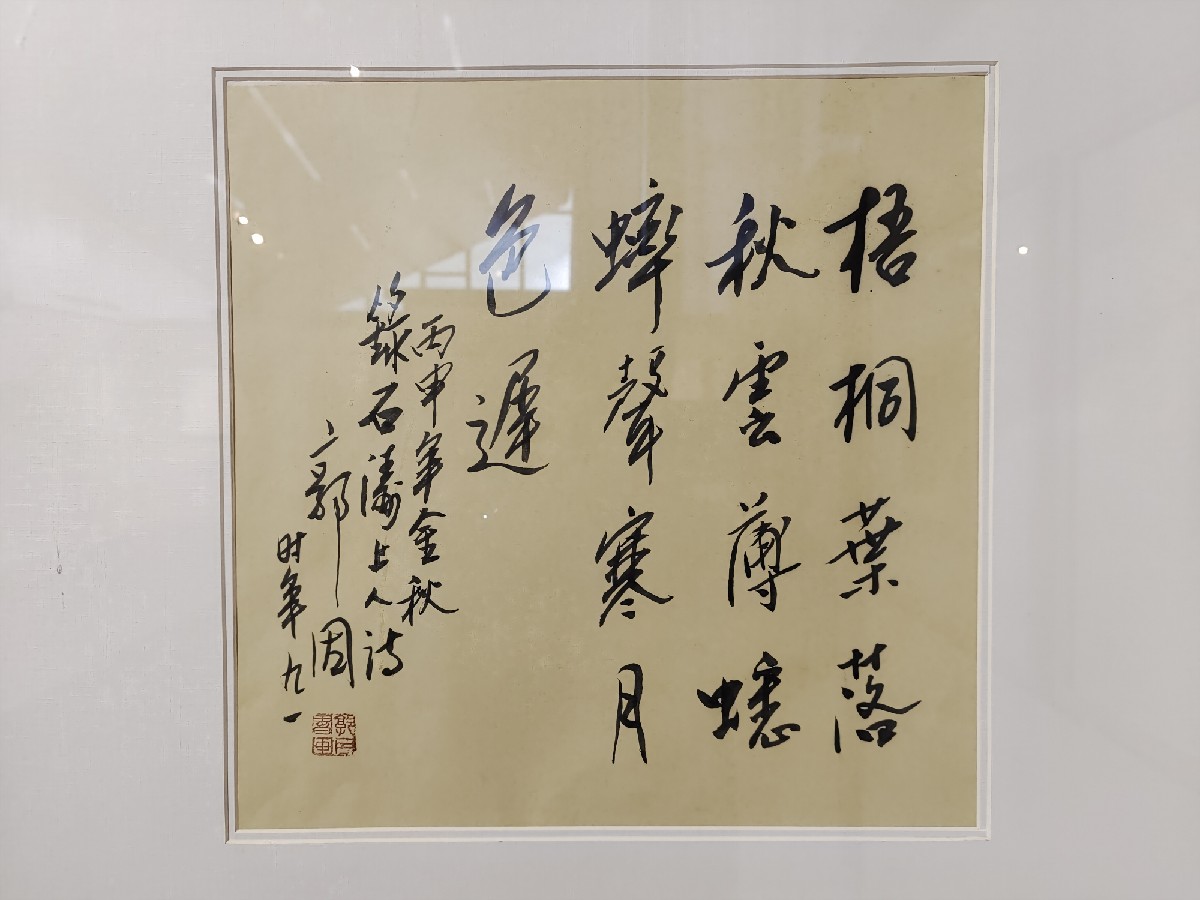 梧桐葉落
秋雲薄蟋
蟀聲寒月
色遲
丙申年金秋
錄石濤上人詩
郭固
时年九一